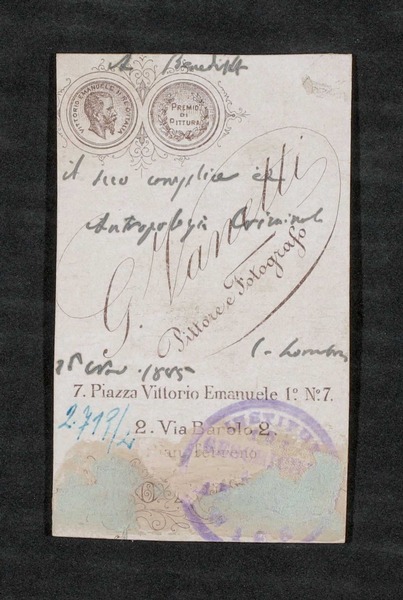 A Benedikt
VITTORIO EMANUELE II RE D'ITALIA
PREMIO
DI
PITTURA
il suo complice in
Antropologia Criminale
G. Vanetti
Pittore e Fotografo
1885
C. Lombroso
7. Piazza Vittorio Emanuele 1º. Nº 7.
2. Via Barolo 2